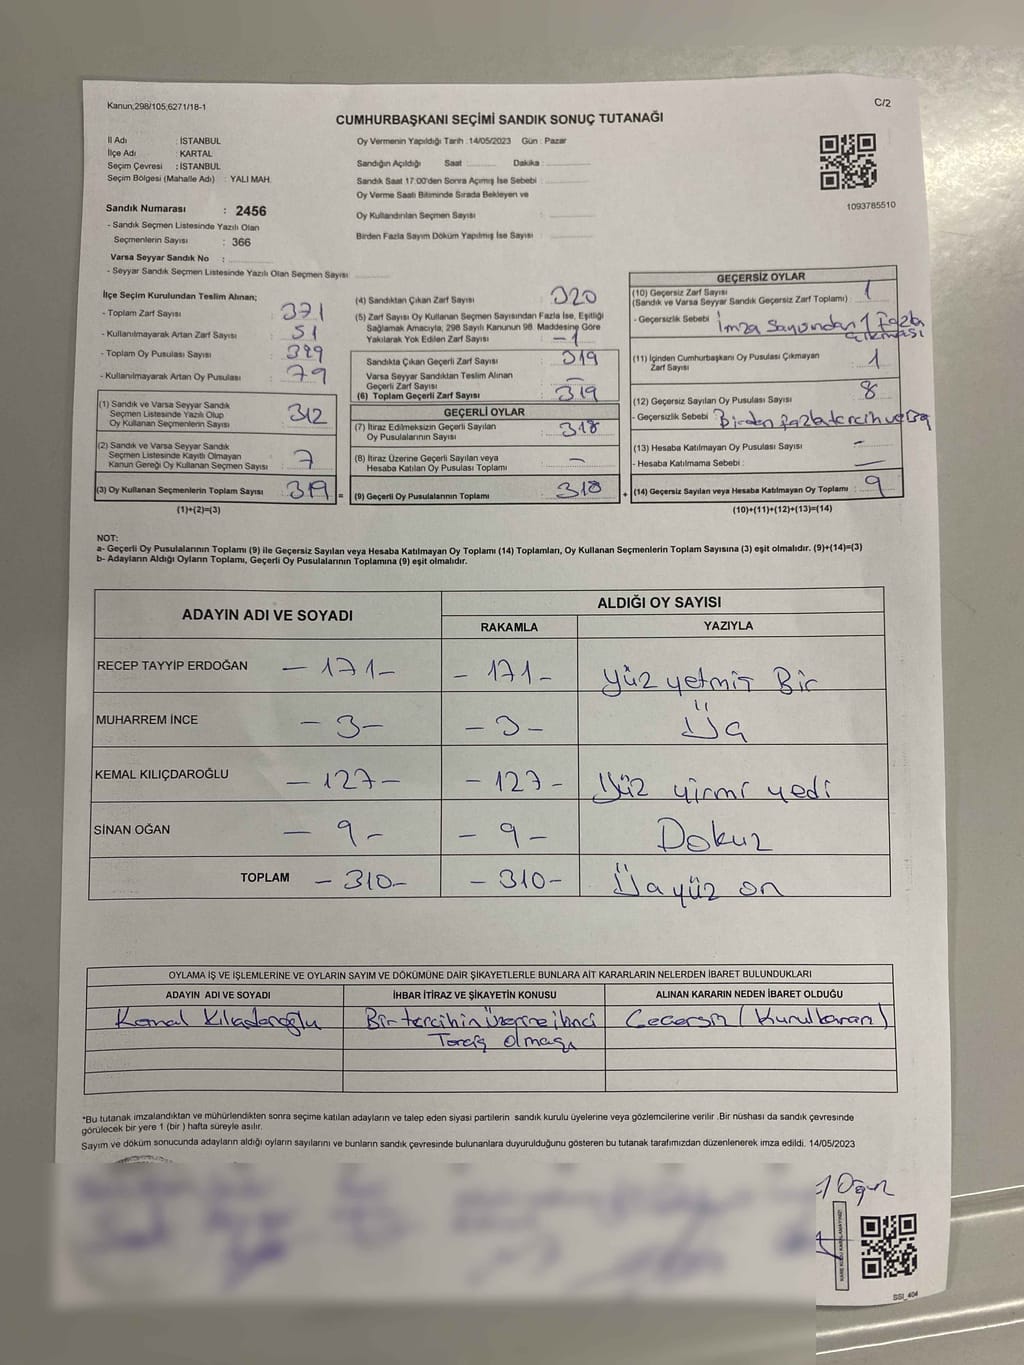 Kanun;298/105,6271/18-1
C/2
CUMHURBAŞKANI SEÇİMİ SANDIK SONUÇ TUTANAĞI
İl Adı : İSTANBUL
İlçe Adı : KARTAL
Seçim Çevresi : İSTANBUL
Seçim Bölgesi (Mahalle Adı) : YALI MAH.
Sandık Numarası : 2456
- Sandık Seçmen Listesinde Yazılı Olan
Seçmenlerin Sayısı : 366
Varsa Seyyar Sandık No :
- Seyyar Sandık Seçmen Listesinde Yazılı Olan Seçmen Sayısı
Oy Vermenin Yapıldığı Tarih :14/05/2023 Gün : Pazar
Sandığın Açıldığı Saat : Dakika :
Sandık Saat 17:00'den Sonra Açımış İse Sebebi :
Oy Verme Saati Bitiminde Sırada Bekleyen ve
Oy Kullandırılan Seçmen Sayısı :
Birden Fazla Sayım Döküm Yapılmış İse Sayısı :
1093785510
İlçe Seçim Kurulundan Teslim Alınan;
- Toplam Zarf Sayısı : 371
- Kullanılmayarak Artan Zarf Sayısı : 51
- Toplam Oy Pusulası Sayısı : 399
- Kullanılmayarak Artan Oy Pusulası : 79
(1) Sandık ve Varsa Seyyar Sandık
Seçmen Listesinde Yazılı Olup
Oy Kullanan Seçmenlerin Sayısı : 312
(2) Sandık ve Varsa Seyyar Sandık
Seçmen Listesinde Kayıtlı Olmayan
Kanun Gereği Oy Kullanan Seçmen Sayısı : 7
(3) Oy Kullanan Seçmenlerin Toplam Sayısı : 319
(1)+(2)=(3)
(4) Sandıktan Çıkan Zarf Sayısı : 320
(5) Zarf Sayısı Oy Kullanan Seçmen Sayısından Fazla İse, Eşitliği
Sağlamak Amacıyla; 298 Sayılı Kanunun 98. Maddesine Göre
Yakılarak Yok Edilen Zarf Sayısı : -1
Sandıkta Çıkan Geçerli Zarf Sayısı : 319
Varsa Seyyar Sandıktan Teslim Alınan
Geçerli Zarf Sayısı : -
(6) Toplam Geçerli Zarf Sayısı : 319
GEÇERLİ OYLAR
(7) İtiraz Edilmeksizin Geçerli Sayılan
Oy Pusulalarının Sayısı : 318
(8) İtiraz Üzerine Geçerli Sayılan veya
Hesaba Katılan Oy Pusulası Toplamı : -
= (9) Geçerli Oy Pusulalarının Toplamı : 310
GEÇERSİZ OYLAR
(10) Geçersiz Zarf Sayısı
(Sandık ve Varsa Seyyar Sandık Geçersiz Zarf Toplamı) : 1
- Geçersizlik Sebebi : İmza Sayısından 1 Fazla
çıkması
(11) İçinden Cumhurbaşkanı Oy Pusulası Çıkmayan
Zarf Sayısı : 1
(12) Geçersiz Sayılan Oy Pusulası Sayısı : 8
- Geçersizlik Sebebi : Birden fazla tercih
(13) Hesaba Katılmayan Oy Pusulası Sayısı : -
- Hesaba Katılmama Sebebi : -
+ (14) Geçersiz Sayılan veya Hesaba Katılmayan Oy Toplamı : 9
(10)+(11)+(12)+(13)=(14)
NOT:
a- Geçerli Oy Pusulalarının Toplamı (9) ile Geçersiz Sayılan veya Hesaba Katılmayan Oy Toplamı (14) Toplamları, Oy Kullanan Seçmenlerin Toplam Sayısına (3) eşit olmalıdır. (9)+(14)=(3)
b- Adayların Aldığı Oyların Toplamı, Geçerli Oy Pusulalarının Toplamına (9) eşit olmalıdır.
ADAYIN ADI VE SOYADI
ALDIĞI OY SAYISI
RAKAMLA YAZIYLA
RECEP TAYYİP ERDOĞAN - 171 - - 171 - Yüz yetmiş Bir
MUHARREM İNCE - 3 - - 3 - Üç
KEMAL KILIÇDAROĞLU - 127 - - 127 - Yüz yirmi yedi
SİNAN OĞAN - 9 - - 9 - Dokuz
TOPLAM - 310 - - 310 - Üçyüz on
OYLAMA İŞ VE İŞLEMLERİNE VE OYLARIN SAYIM VE DÖKÜMÜNE DAİR ŞİKAYETLERLE BUNLARA AİT KARARLARIN NELERDEN İBARET BULUNDUKLARI
ADAYIN ADI VE SOYADI İHBAR İTİRAZ VE ŞİKAYETİN KONUSU ALINAN KARARIN NEDEN İBARET OLDUĞU
Kemal Kılıçdaroğlu Bir tercihin üzerine ikinci Geçersiz (Kurul kararı)
Tercih olması
*Bu tutanak imzalandıktan ve mühürlendikten sonra seçime katılan adayların ve talep eden siyasi partilerin sandık kurulu üyelerine veya gözlemcilerine verilir .Bir nüshası da sandık çevresinde
görülecek bir yere 1 (bir ) hafta süreyle asılır.
Sayım ve döküm sonucunda adayların aldığı oyların sayılarını ve bunların sandık çevresinde bulunanlara duyurulduğunu gösteren bu tutanak tarafımızdan düzenlenerek imza edildi. 14/05/2023
KARE KODU KARALAMAYINIZ!
SSI_404